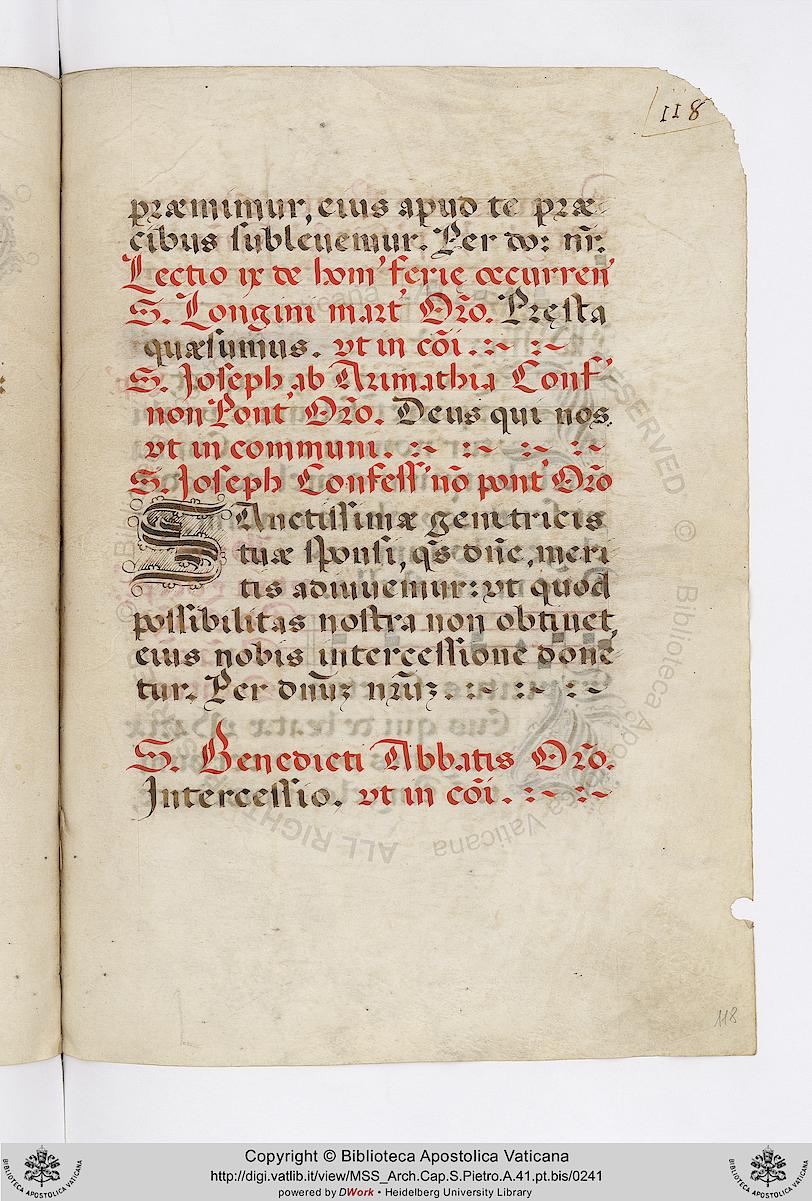 118
præmimur, eius apud te præ-
cibus subleuemur. Per do: nr̄.
Lectio ix de hom' ferie occurren'
S. Longini mart' Or̄o. Pręsta
quæsumus. vt in cōi.
S. Joseph ab Arimathia Conf'
non Pont' Or̄o. Deus qui nos.
vt in communi.
S. Joseph Confess' nō pont' Or̄o
SAnctissimæ genitricis
tuæ sponsi, qs̄ dn̄e, meri
tis adiuuemur: vt quod
possibilitas nostra non obtinet,
eius nobis intercessione done
tur. Per dn̄uꝫ nr̄uꝫ.
S. Benedicti Abbatis Or̄o.
Intercessio. vt in cōi.
118
Copyright © Biblioteca Apostolica Vaticana
http://digi.vatlib.it/view/MSS_Arch.Cap.S.Pietro.A.41.pt.bis/0241
powered by DWork • Heidelberg University Library